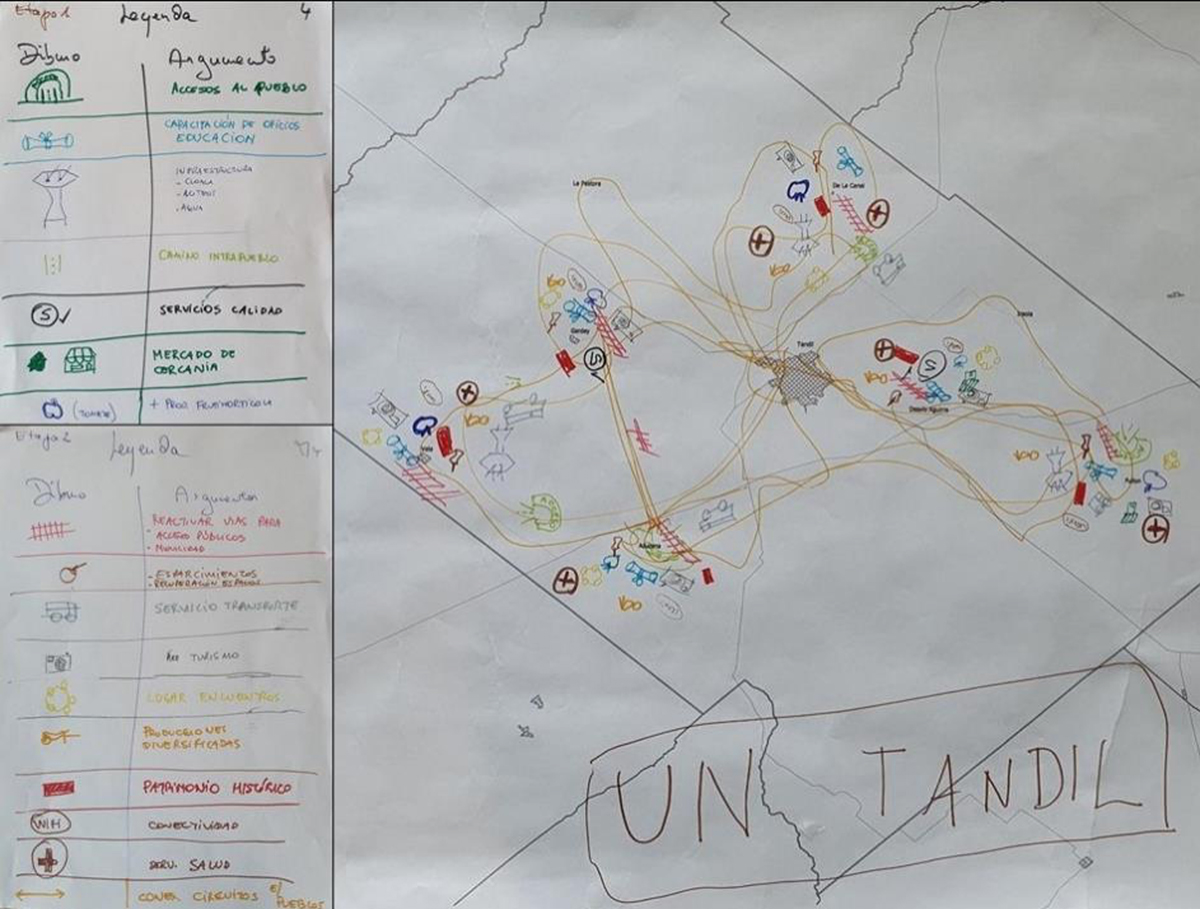 Etapa 1 Leyenda 4
Dibujo Argumento
ACCESOS AL PUEBLO
CAPACITACIÓN DE OFICIOS
EDUCACION
INFRAESTRUCTURA
- CLOACA
- AGUA
CAMINO INTRAPUEBLO
S SERVICIOS CALIDAD
MERCADO DE
CERCANIA
(TOMATE) + PROD. FRUTIHORTICOLA
Etapa 2 Leyenda
Dibujo Argumentos
REACTIVAR VIAS PARA
- ACCESO PÚBLICOS
- MOVILIDAD
- ESPARCIMIENTOS
- RECUPERACIÓN ESPACIOS
SERVICIO TRANSPORTE
TURISMO
LUGAR ENCUENTROS
PRODUCCIONES
DIVERSIFICADAS
PATRIMONIO HISTÓRICO
WIFI CONECTIVIDAD
SERV. SALUD
CONEX. CIRCUITOS E/
PUEBLOS
La Pastora
De La Canal
Gardey
Tandil
Iraola
Desvío Aguirre
Vela
Fulton
Azucena
UN TANDIL